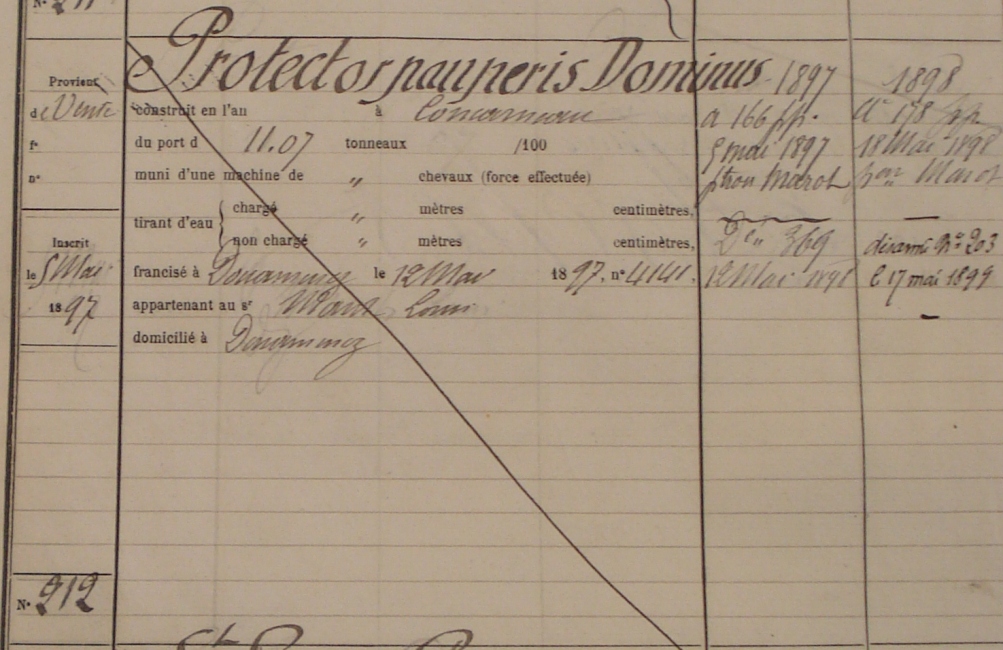 Protector pauperis Dominus
1897
1898
Provient
de Vente
construit en l'an à Concarneau
a 166 pp.
a 178 pp
fº
du port d 11.07 tonneaux /100
5 mai 1897
18 Mai 1898
nº
muni d'une machine de " chevaux (force effectuée)
ptron Marot
Marot
tirant d'eau
chargé " mètres centimètres,
non chargé " mètres centimètres,
Dé 369
désarmé Nº 203
Inscrit
le 5 Mai
1897
francisé à Douarnenez le 12 Mai 1897. nº 4141.
12 Mai 1898
le 17 mai 1899
appartenant au sr Louis
domicilié à Douarnenez
Nº 212
St